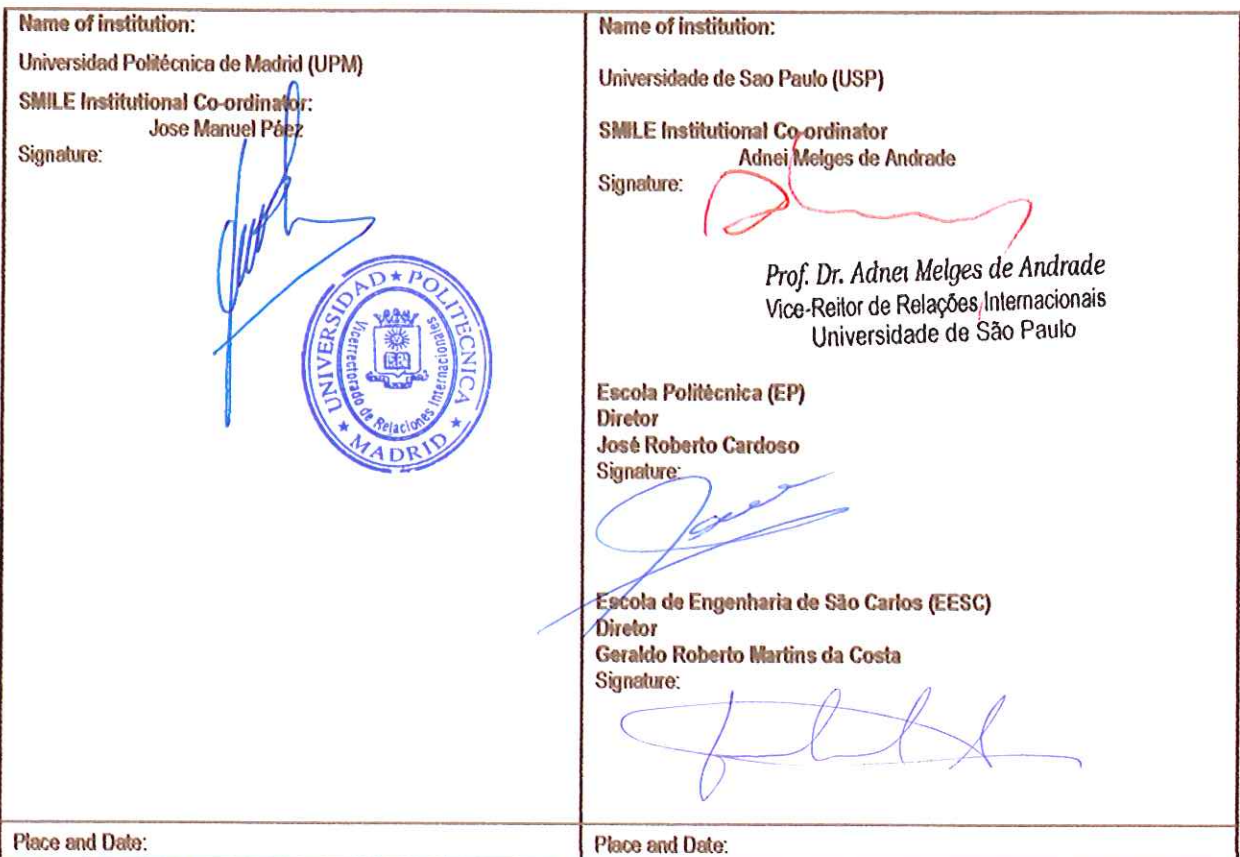 Name of institution:
Universidad Politécnica de Madrid (UPM)
SMILE Institutional Co-ordinator:
Jose Manuel Páez
Signature:
UNIVERSIDAD ★ POLITECNICA ★ MADRID ★
Vicerrectorado de Relaciones Internacionales
Place and Date:
Name of institution:
Universidade de Sao Paulo (USP)
SMILE Institutional Co-ordinator
Adnei Melges de Andrade
Signature:
Prof. Dr. Adnei Melges de Andrade
Vice-Reitor de Relações Internacionais
Universidade de São Paulo
Escola Politècnica (EP)
Diretor
José Roberto Cardoso
Signature:
Escola de Engenharia de São Carlos (EESC)
Diretor
Geraldo Roberto Martins da Costa
Signature:
Place and Date: